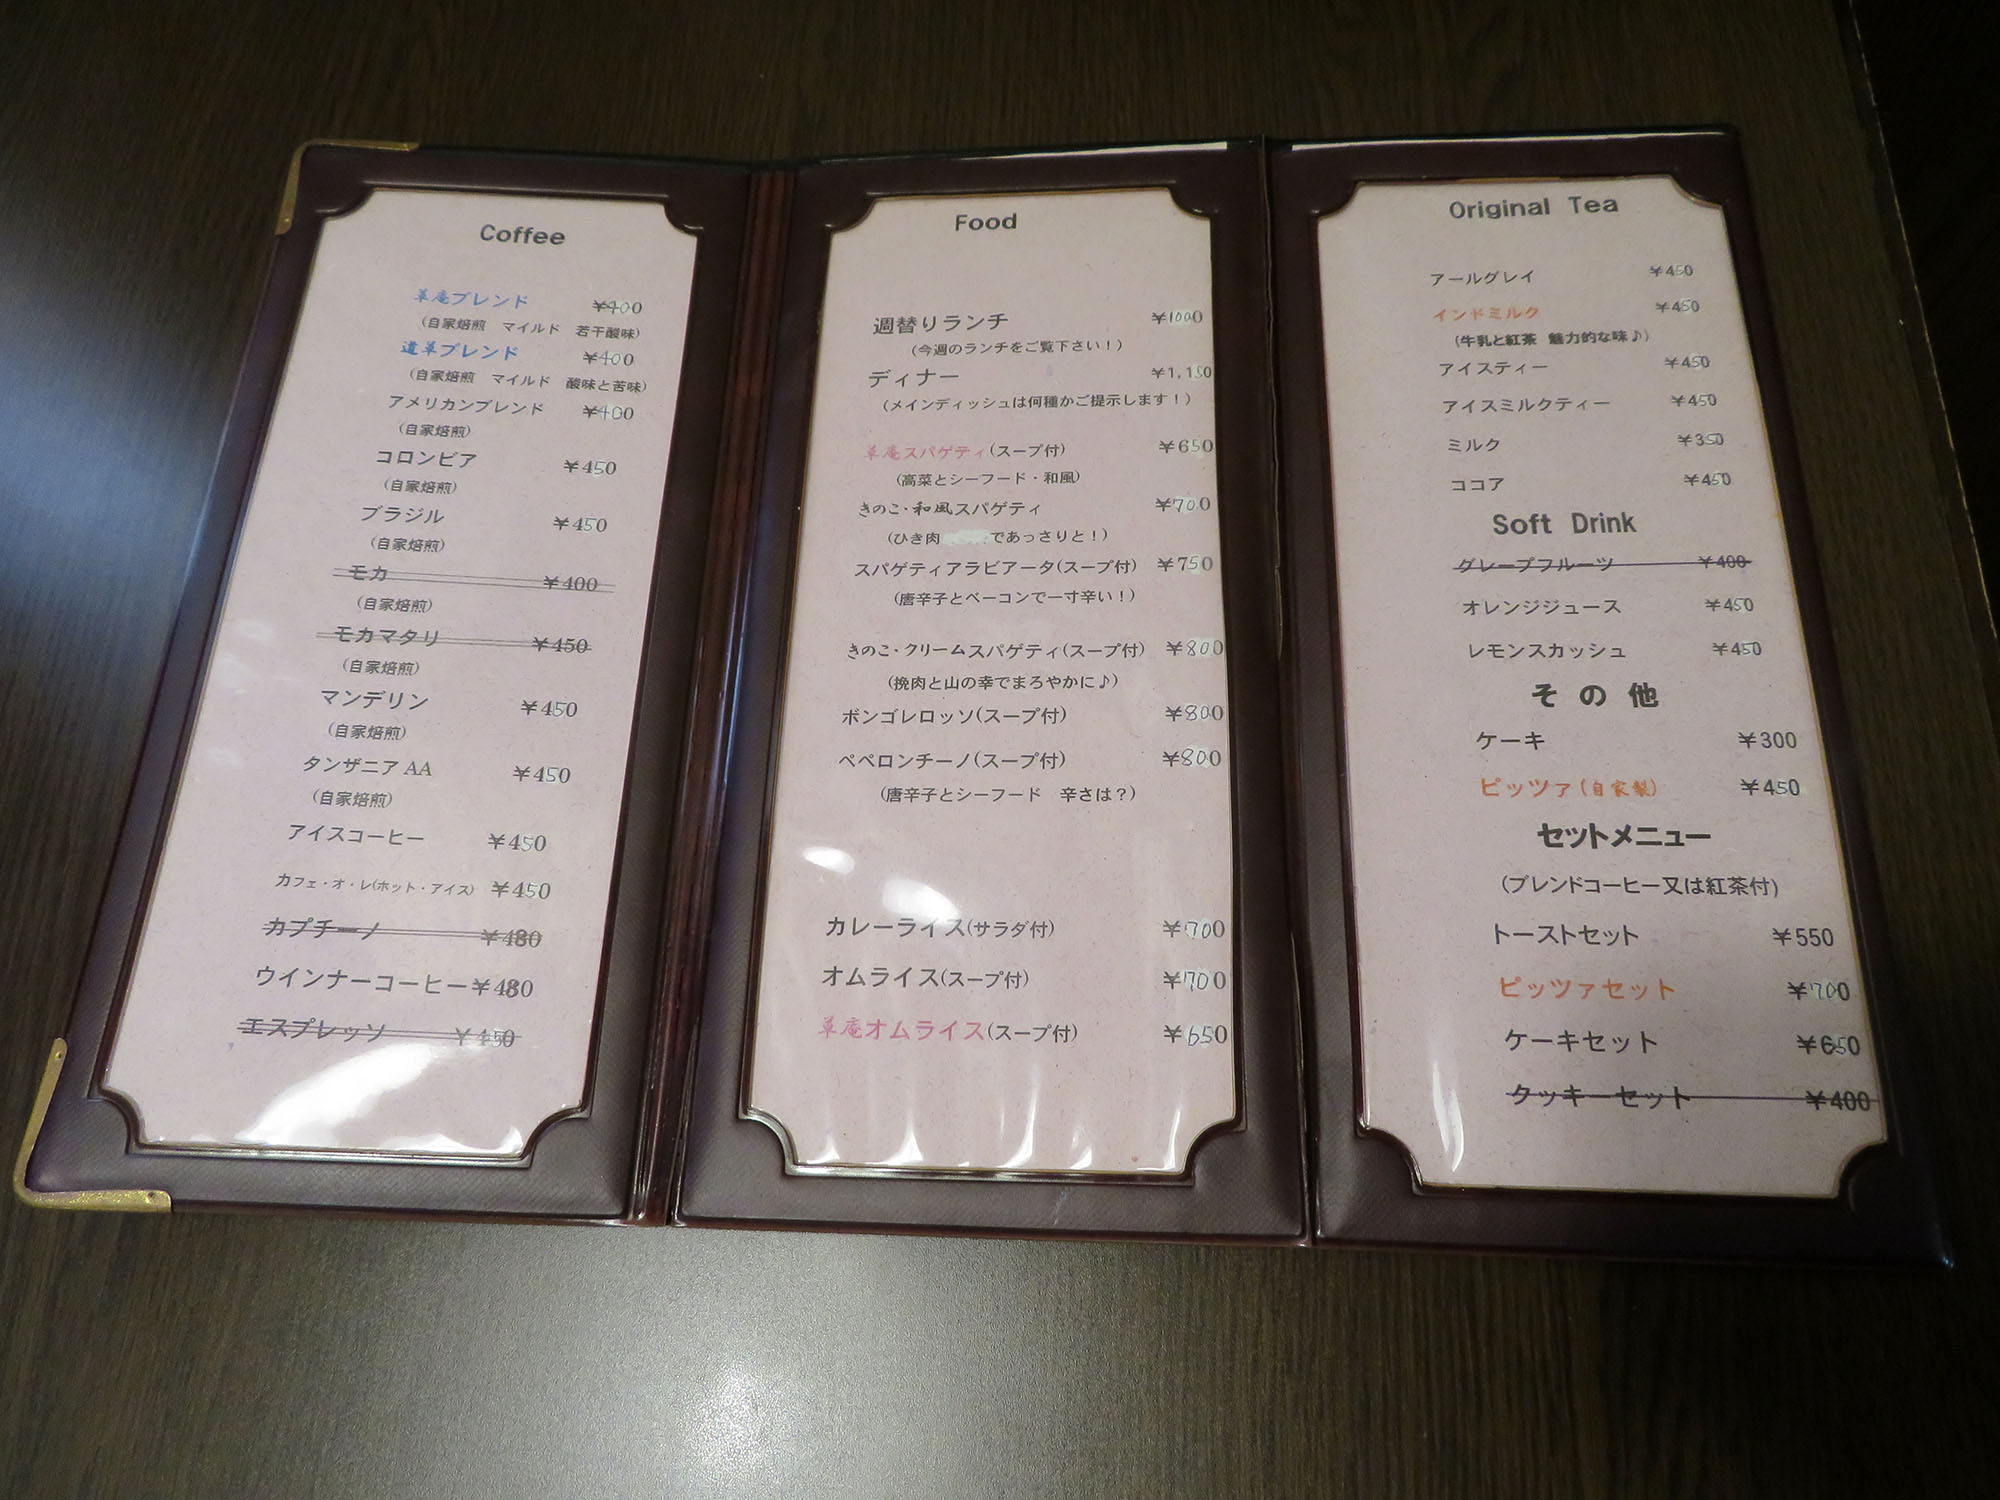 Coffee
草庵ブレンド ¥400
(自家焙煎 マイルド 若干酸味)
道草ブレンド ¥400
(自家焙煎 マイルド 酸味と苦味)
アメリカンブレンド ¥400
(自家焙煎)
コロンビア ¥450
(自家焙煎)
ブラジル ¥450
(自家焙煎)
モカ ¥400
(自家焙煎)
モカマタリ ¥450
(自家焙煎)
マンデリン ¥450
(自家焙煎)
タンザニア AA ¥450
(自家焙煎)
アイスコーヒー ¥450
カフェ・オ・レ(ホット・アイス) ¥450
カプチーノ ¥480
ウインナーコーヒー ¥480
エスプレッソ ¥450
Food
週替りランチ ¥1000
(今週のランチをご覧下さい!)
ディナー ¥1,150
(メインディッシュは何種かご提示します!)
草庵スパゲティ(スープ付) ¥650
(高菜とシーフード・和風)
きのこ・和風スパゲティ ¥700
(ひき肉 であっさりと!)
スパゲティアラビアータ(スープ付) ¥750
(唐辛子とベーコンで一寸辛い!)
きのこ・クリームスパゲティ(スープ付) ¥800
(挽肉と山の幸でまろやかに♪)
ボンゴレロッソ(スープ付) ¥800
ペペロンチーノ(スープ付) ¥800
(唐辛子とシーフード 辛さは?)
カレーライス(サラダ付) ¥700
オムライス(スープ付) ¥700
草庵オムライス(スープ付) ¥650
Original Tea
アールグレイ ¥450
インドミルク ¥450
(牛乳と紅茶 魅力的な味♪)
アイスティー ¥450
アイスミルクティー ¥450
ミルク ¥350
ココア ¥450
Soft Drink
グレープフルーツ ¥400
オレンジジュース ¥450
レモンスカッシュ ¥450
その他
ケーキ ¥300
ピッツァ(自家製) ¥450
セットメニュー
(ブレンドコーヒー又は紅茶付)
トーストセット ¥550
ピッツァセット ¥700
ケーキセット ¥650
クッキーセット ¥400